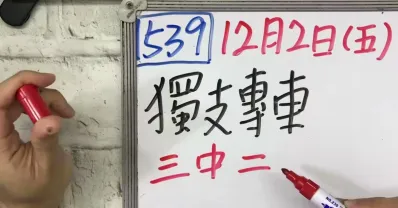 539 12月2日(五)
獨支專車
三中二